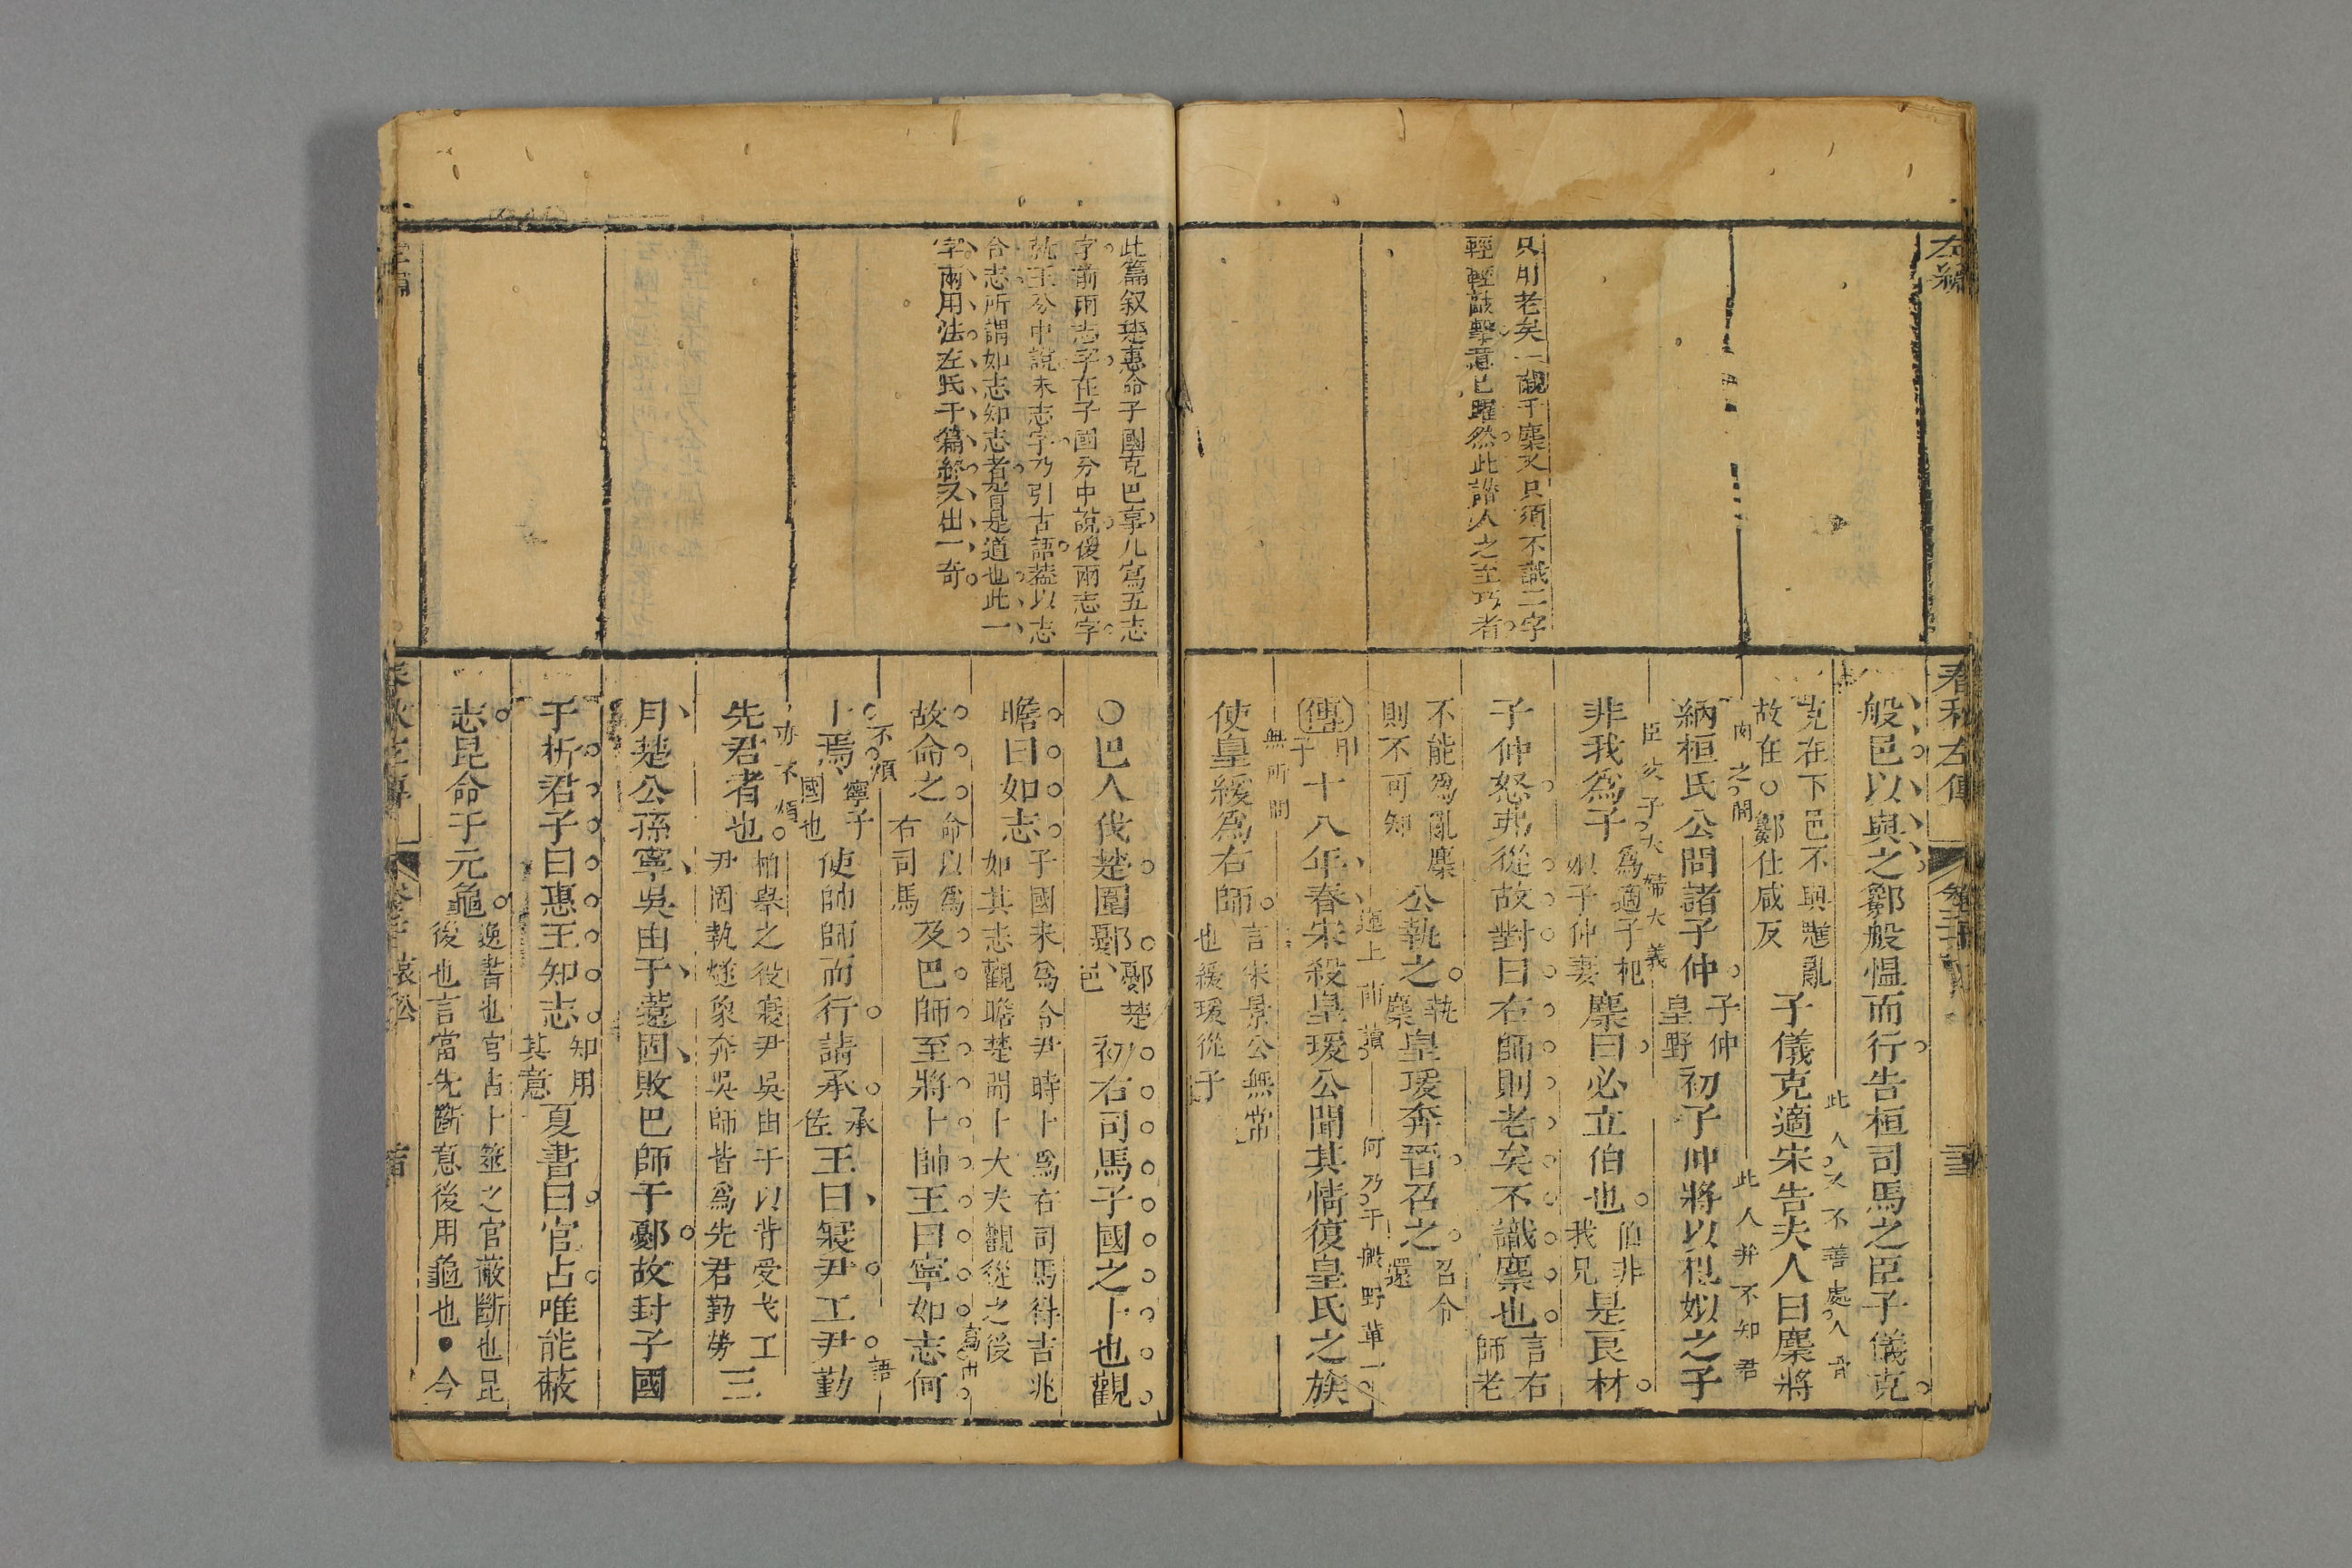 左繡
只用老矣一襯于麇又只須不識二字
輕輕敲擊意已躍然此譖人之至巧者
春秋左傳
般邑以與之鄭般慍而行告桓司馬之臣子儀克
克在下邑不與魋亂
故在○鄭仕咸反
子儀克適宋告夫人曰麇將
此人又不善處人骨
肉之間
納桓氏公問諸子仲
子仲
皇野
初子仲將以杞姒之子
此人并不知君
臣父子夫婦大義
非我為子
為適子杞
姒子仲妻
麇曰必立伯也
伯非
我兄
是良材
子仲怒弗從故對曰右師則老矣不識麇也
言右
師老
不能為亂麇
則不可知
公執之
執
麇
皇瑗奔晉召之
召令
還
傳
甲
子
十八年春宋殺皇瑗公聞其情復皇氏之族
何乃于般野輩一
無所問
使皇緩為右師
言宋景公無常
也緩瑗從子
此篇叙楚惠命子國克巴享凡寫五志
字前兩志字在子國分中說後兩志字
就王分中說末志字乃引古語葢以志
合志所謂如志知志者皆是道也此一
字兩用法左氏于篇終又出一奇
○巴人伐楚圍鄾
鄾楚
邑
初右司馬子國之卜也觀
瞻曰如志
子國未為令尹時卜為右司馬得吉兆
如其志觀瞻楚開卜大夫觀從之後
故命之
命以為
右司馬
及巴師至將卜帥王曰寧如志何
卜焉
寧子
國也
使帥師而行請承
承
佐
王曰寢尹工尹勤
不煩
亦不煩
先君者也
柏舉之役寢尹吳由于以背受戈工
尹固執燧象奔吳師皆為先君勤勞
三
月楚公孫寧吳由于薳固敗巴師于鄾故封子國
于析君子曰惠王知志
知用
其意
夏書曰官占唯能蔽
志昆命于元龜
逸書也官占卜筮之官蔽斷也昆
後也言當先斷意後用龜也●今
春秋左傳